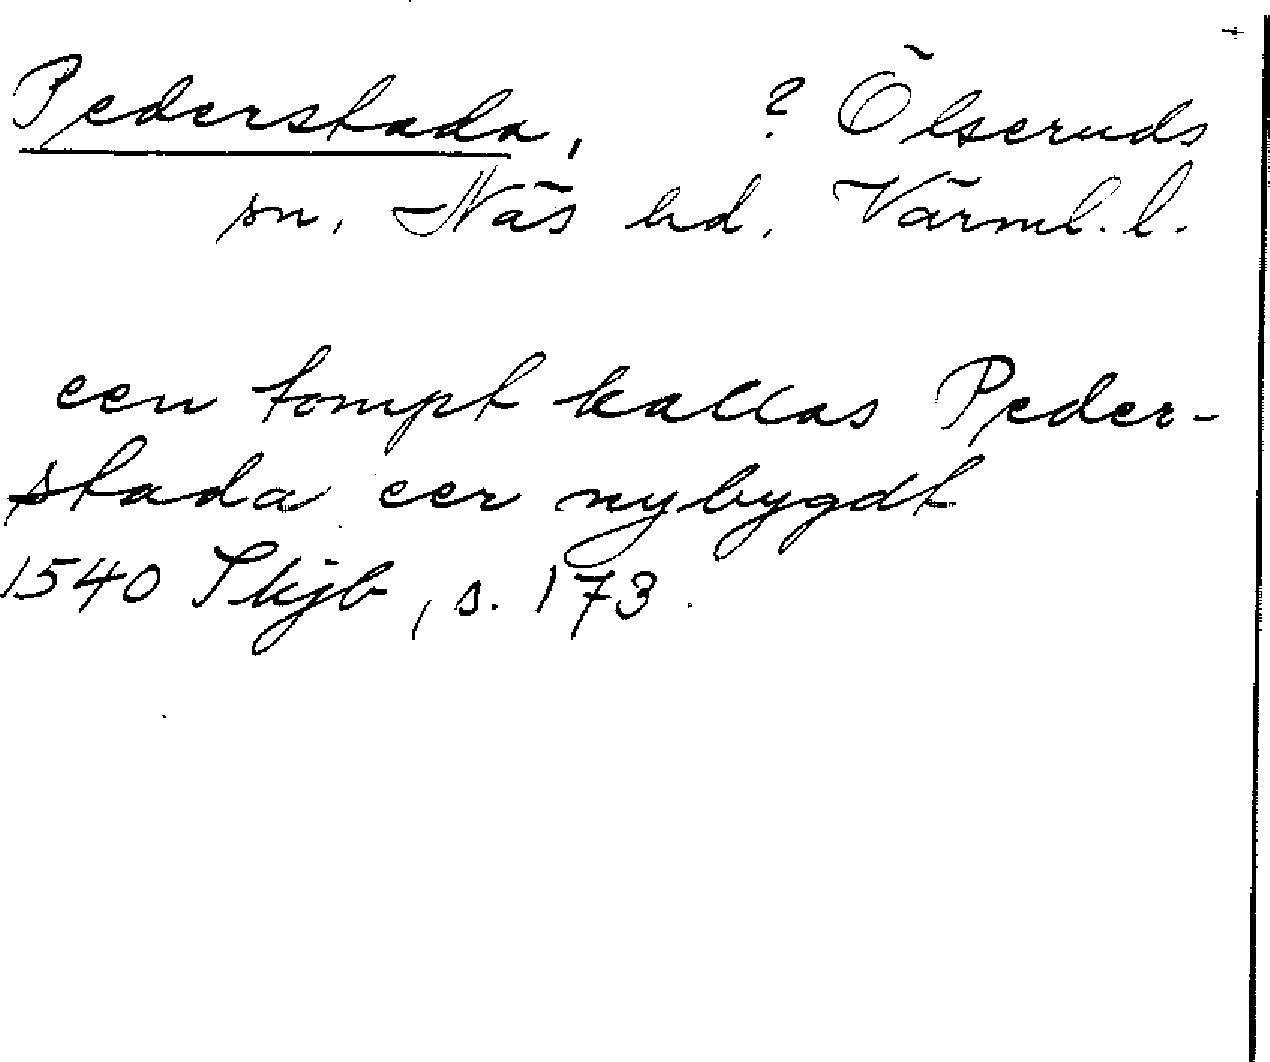 Pederstada, ? Ölseruds
sn. Näs hd. Värml. l.
een tompt kallas Peder-
stada eer nybygdt
1540 Skjb, s. 173.